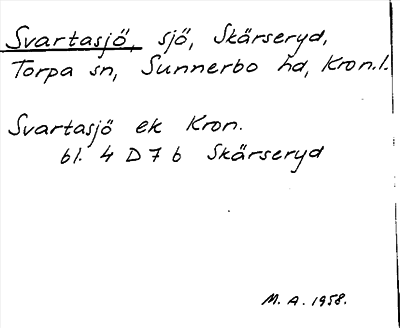 Svartasjö, sjö, Skärseryd,
Torpa sn, Sunnerbo hd, Kron.l.
Svartasjö ek Kron.
bl. 4 D 7 b Skärseryd
M. A. 1958.